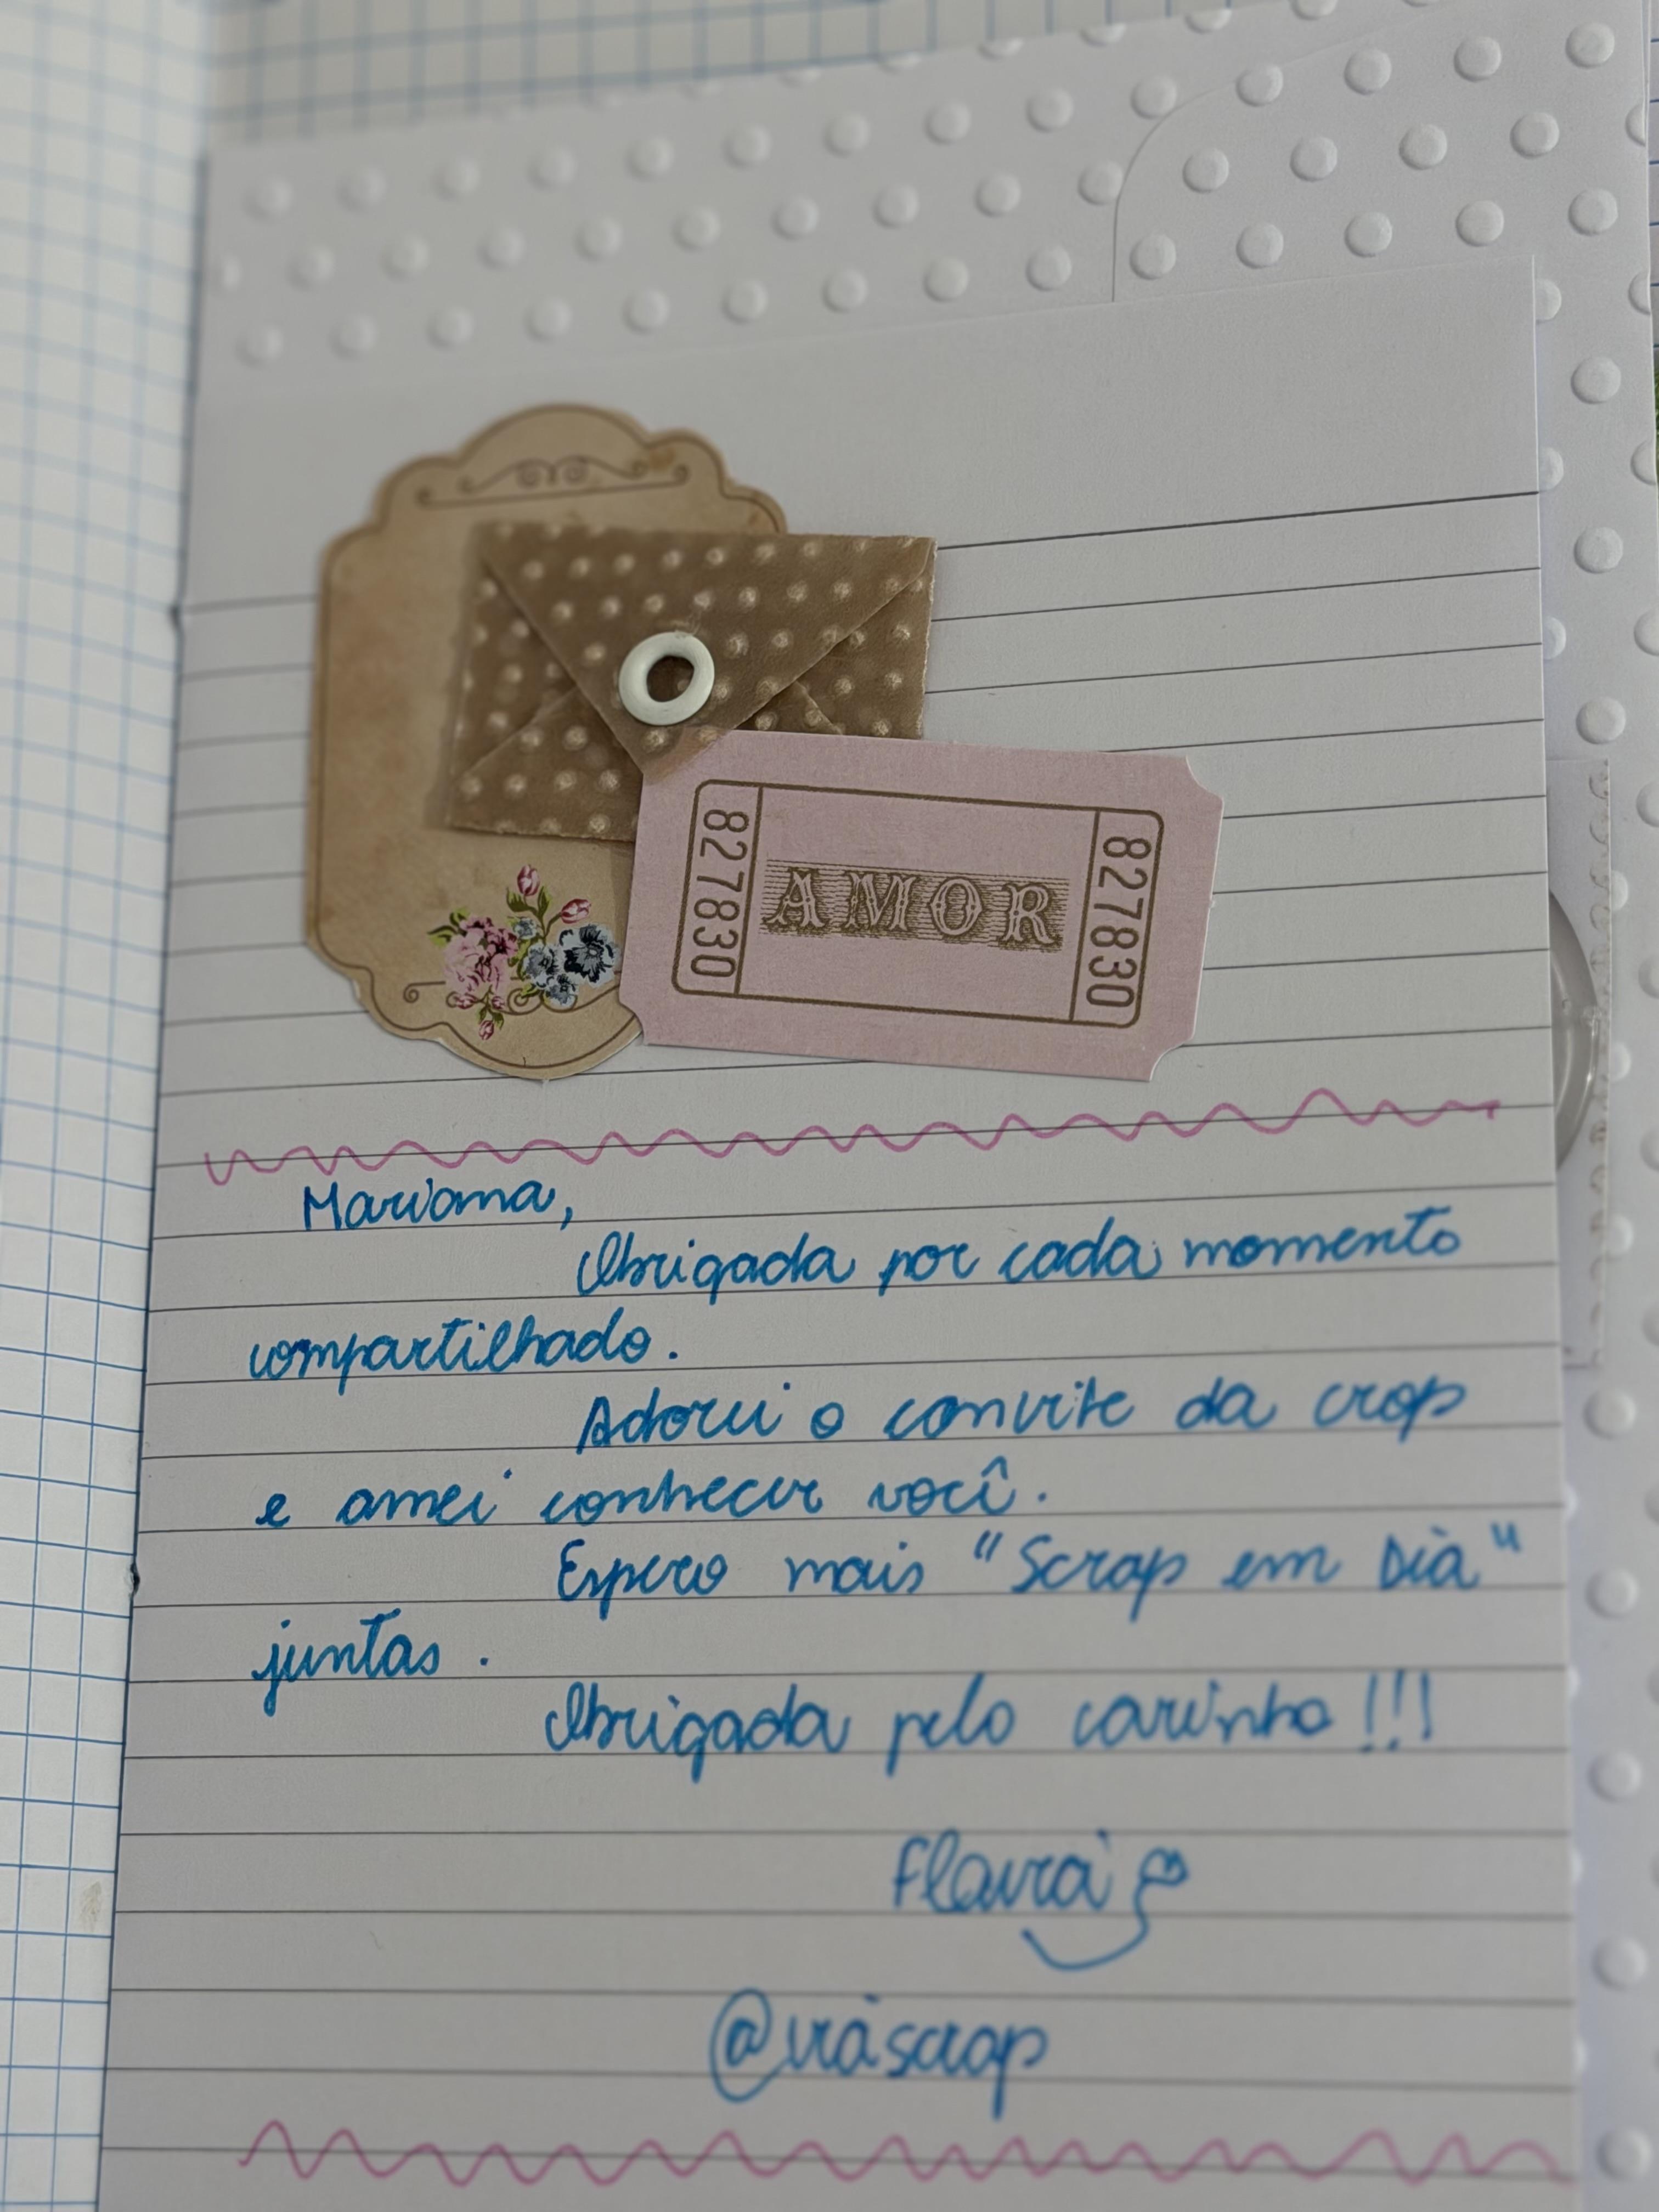 827830
AMOR
827830
Mariana,
Obrigada por cada momento
compartilhado.
Adorei o convite da crop
e amei conhecer você.
Espero mais "Scrap em Dia"
juntas.
Obrigada pelo carinho!!!
Flavia
@viascrap